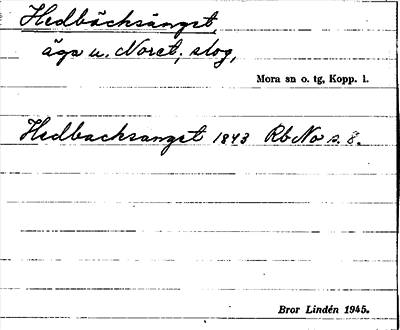 Hedbäcksänget,
äga u. Noret, slog,
Mora sn o. tg, Kopp. l.
Hedbacksanget 1843 RbNo s. 8.
Bror Lindén 1945.